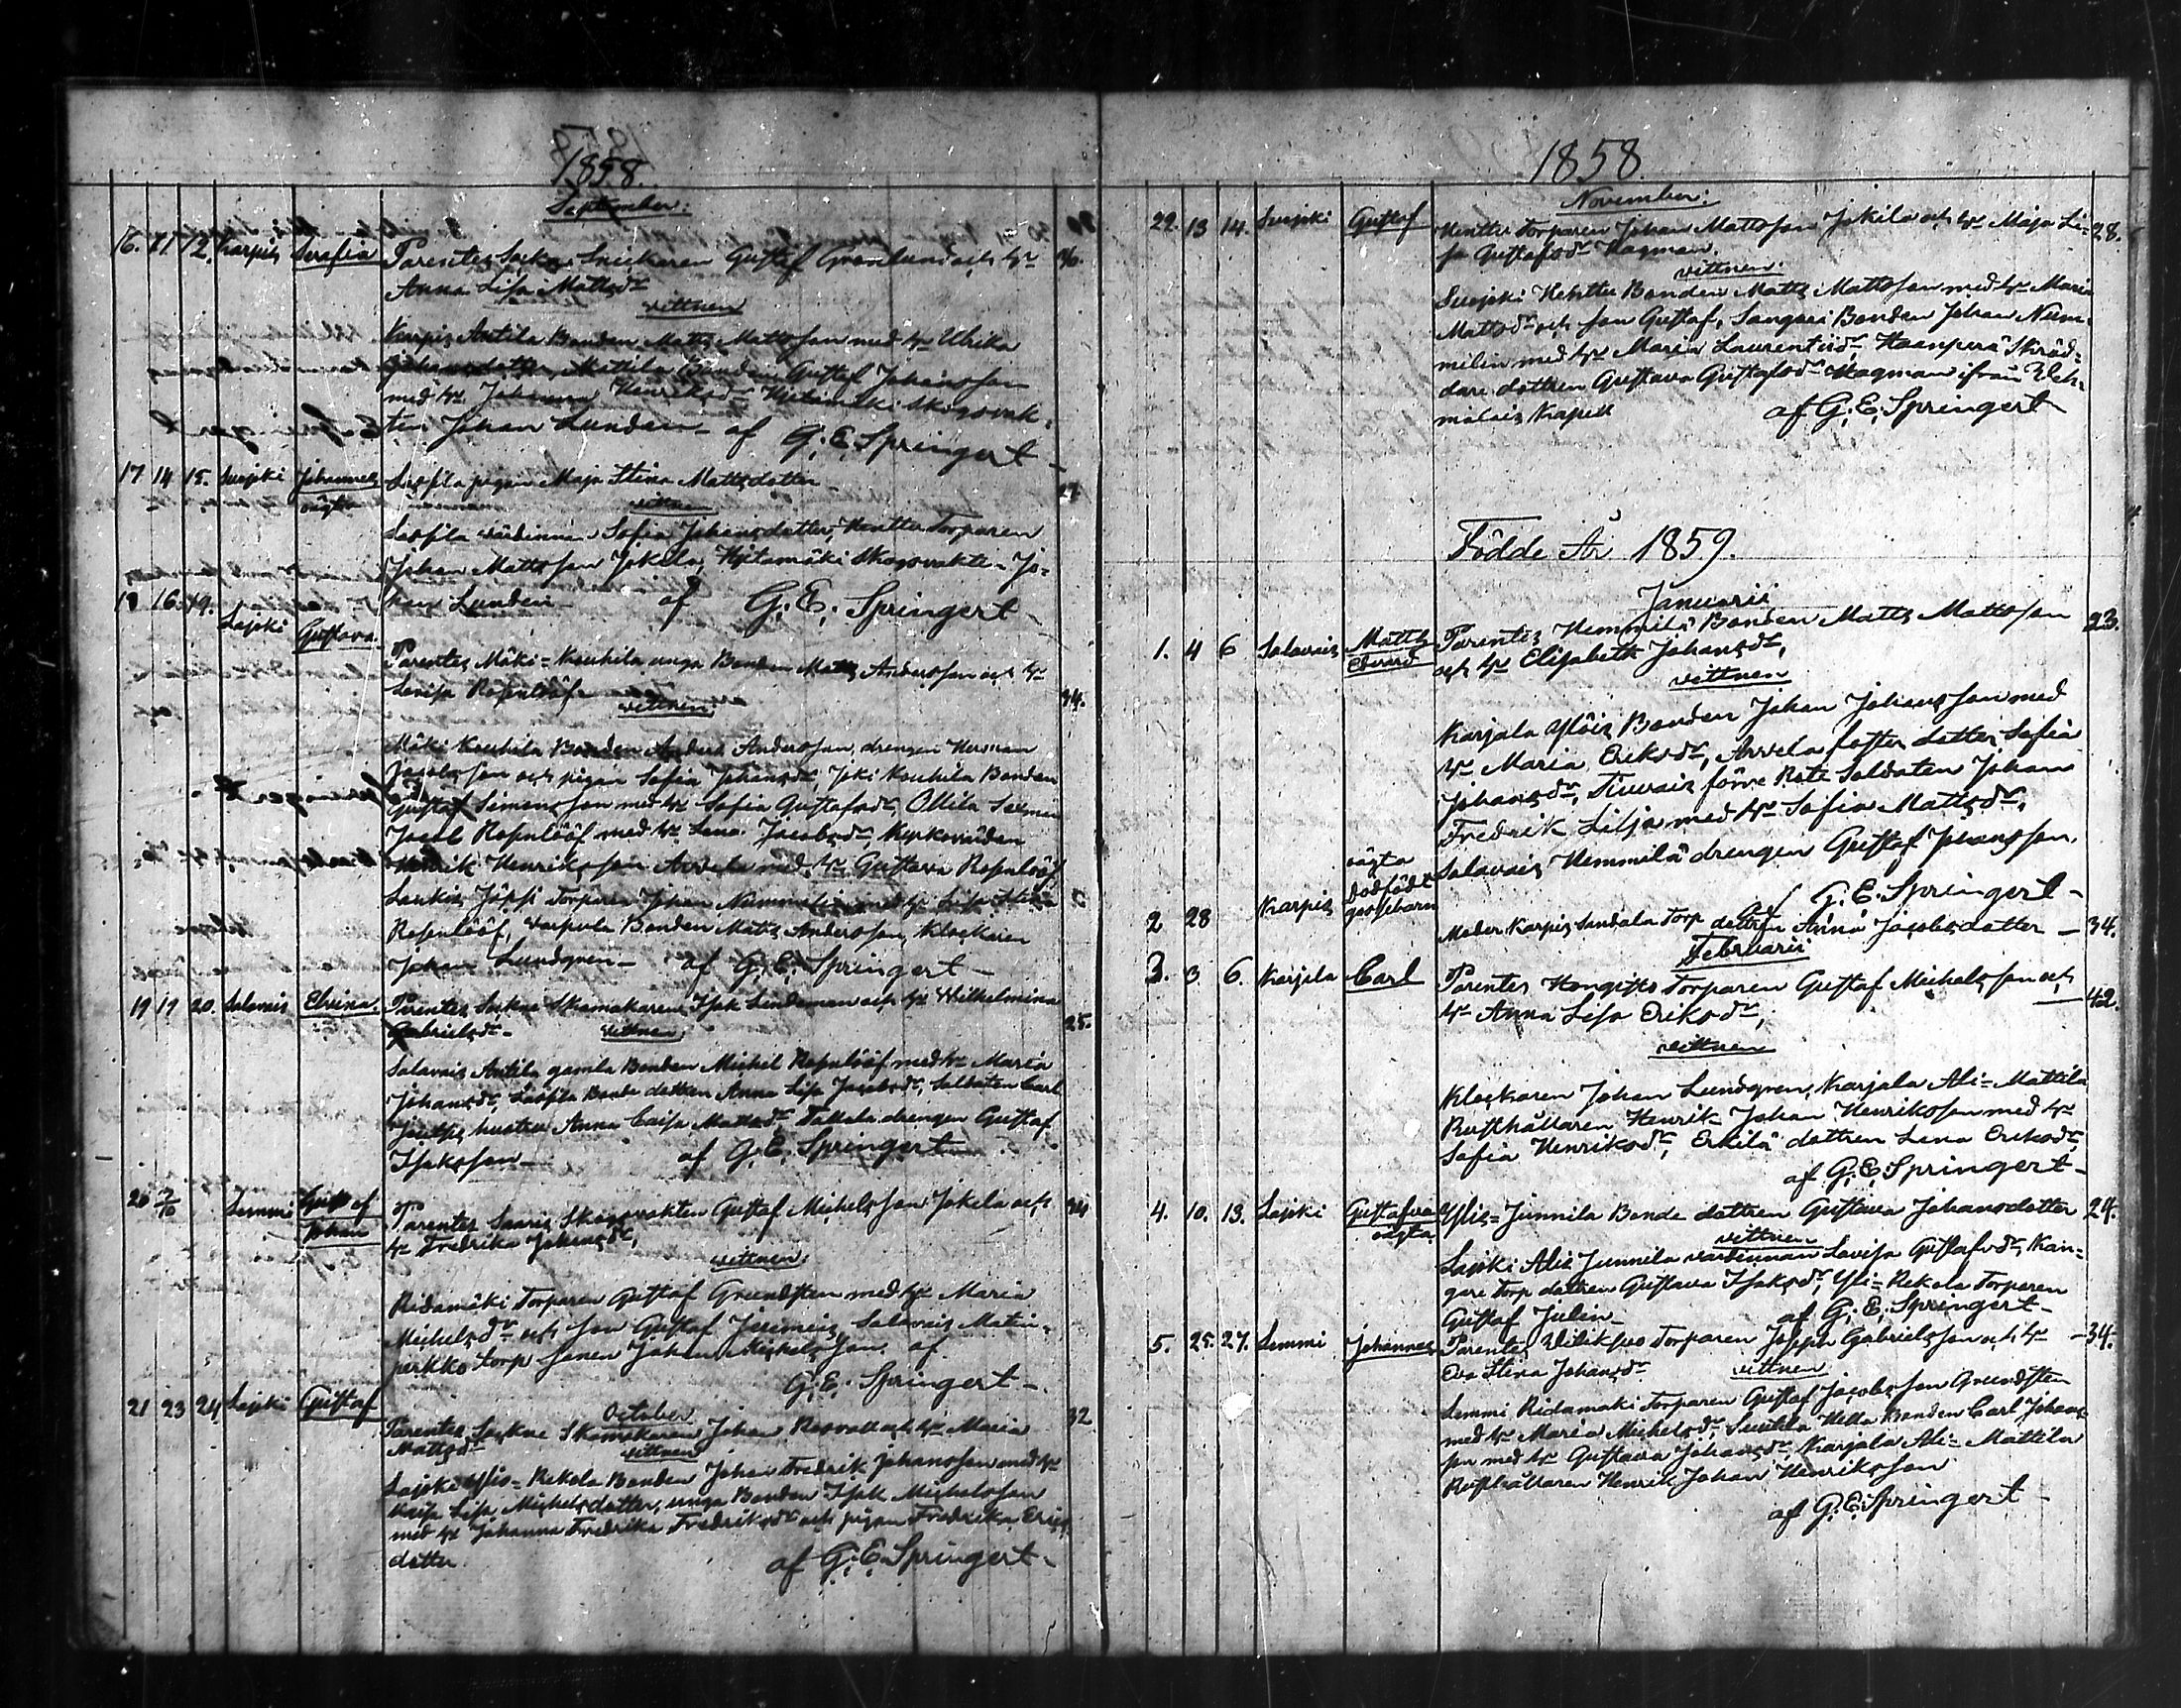 1858.
September:
16. 11 12. Karpis Serafia Parentes Sockne Snickaren Gustaf Grönlund och h:u 36.
Anna Lisa Mattsd:r
vittnen
Karpis Antila Bonden Matts Mattsson med h:u Ulrika
Johansdotter, Mattila Bonden Gustaf Johansson
med h:u Johanna Henriksd:r Hjetamäki Skogsvak-
ten Johan Lunden – af G. E. Springert –
17 14 15. Suojoki Johannes Lassila pigan Maja Stina Mattsdotter 27
oägta vittnen
Lassila värdinnan Sofia Johansdotter, Henttu Torparen
Johan Mattsson Jokela, Hjetamäki Skogsvakte- Jo-
han Lunden – af G. E. Springert
18 16. 19. Lajoki Gustava
Parentes Mäki-Kouhila unga Bonden Matts Andersson och h:u
Lovisa Rosenlööf – 34.
vittnen:
Mäki Kouhila Bonden Anders Andersson, drengen Herman
Jacobsson och pigan Sofia Johansd:r, Joki Kouhila Bonden
Gustaf Simonsson med h:u Sofia Gustafsd:r, Ollila Sexman
Jacob Rosenlööf med h:u Lena Jacobsd:r, Kyrkovärden
Henrik Henriksson Arvela med h:u Gustava Rosenlööf
Laukis Jöpsi Torparen Johan Nummelin med h:u Lisa Stina
Rosenlööf, Varpula Bonden Matts Andersson, Klockaren
Johan Lundgren – af G. E. Springert –
19 19 20. Salavais Elvina. Parentes Sockne Skomakaren Isak Lindeman och h:u Wilhelmina 25.
Gabrielsd:r – vittnen
Salavais Antila gamla Bonden Michel Rosenlööf med h:u Maria
Johansd:r, Lassila Bonde dottren Anna Lisa Jacobsd:r, Soldaten Carl
hustru Anna Caisa Mattsd:r Tattala drengen Gustaf
Isaksson – af G. E. Springert –
20 2/10 Lemmi Gustaf Johan Parentes Saaris Skogsvakten Gustaf Michelsson Jokela och 34
h:u Fredrika Johansd:r,
vittnen:
Ridamäki Torparen Gustaf Grundsten med h:u Maria
Michelsd:r och son Gustaf Jeremias, Salavais Matin-
perkko torp sonen Johan Michelsson af
G. E. Springert –
October
21 23 24 Lajoki Gustaf Parentes Sockne Skomakaren Johan Rosvall och h:u Maria 32
Mattsd:r vittnen
Lajoki Ylis-Rekola Bonden Johan Fredrik Johansson med h:u
Kaisa Lisa Michelsdotter, unga Bonden Isak Michelsson
med h:u Johanna Fredrika Fredriksd:r och pigan Fredrika Erics
dotter af G. E. Springert –
1858.
November:
22. 13 14. Suojoki Gustaf Henttu Torparen Johan Mattsson Jokela och h:u Maja Li- 28.
sa Gustafsd:r Hagman.
vittnen:
Suojoki Henttu Bonden Matts Mattsson med h:u Maria
Mattsd:r och son Gustaf, Bonden Johan Num-
melin med h:u Maria Laurentsd:r, Haanperä Skräd-
dare dottren Gustava Gustafsd:r Hagman ifrån Weh-
malais Kapell af G. E. Springert
Födde År 1859.
Januarii
1. 4 6 Salavais Matts Edvard Parentes Hemmilä Bonden Matts Mattsson 23.
och h:u Elisabeth Johansd:r,
vittnen
Karjala Ylöis Bonden Johan Johansson med
h:u Maria Eriksd:r, Arvela foster dotter Sofia
Johansd:r, förre Rote Soldaten Johan
Fredrik Lilja med h:u Sofia Mattsd:r,
Salavais Hemmilä drengen Gustaf Johansson.
af G. E. Springert –
oägta
dödfödt
gossebarn
2 28 Karpis Moder Karpis Sandala Torp dottren Anna Jacobsdotter – 34.
Februarii
3. 3 6. Karjala Carl Parentes Hongisto Torparen Gustaf Michelsson och 42.
h:u Anna Lisa Eriksd:r,
vittnen
Klockaren Johan Lundgren, Karjala Ali-Mattila
Rusthållaren Henrik Johan Henriksson med h:u
Sofia Henriksd:r, Erkilä dottren Lena Ericsd:r,
af G. E. Springert –
4. 10. 13. Lajoki Gustafva Ylis-Junnila Bonde dottren Gustava Johansdotter 24.
oägta vittnen
Lajoki Alis Junnila värdinnan Lovisa Gustafsd:r, Kan-
gare Torp dottren Gustava Isaksd:r, Yli-Rekola Torparen
Gustaf Julin – af G. E. Springert –
5. 25. 27. Lemmi Johannes Parentes Torparen Joseph Gabrielsson och h:u – 34.
Eva Stina Johansd:r vittnen
Lemmi Ridamäki Torparen Gustaf Jacobsson Grundsten
med h:u Maria Michelsd:r, Suukila Hella Bonden Carl Johans-
son med h:u Gustava Johansd:r, Karjala Ali-Mattila
Rusthållaren Henrik Johan Henriksson
af G. E. Springert –